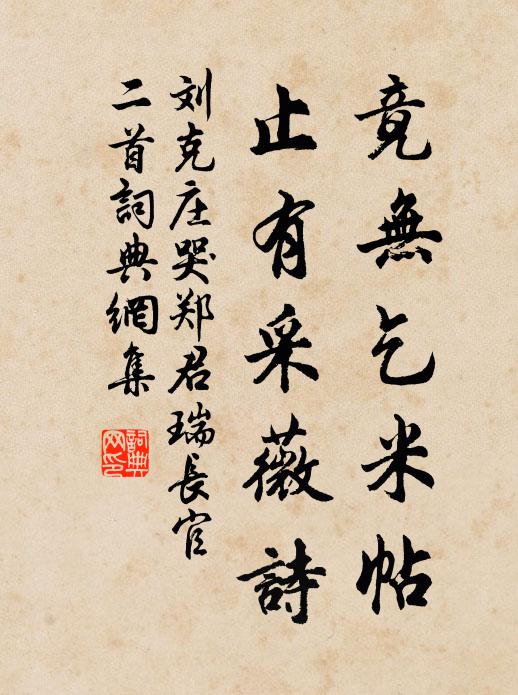 竟無乞米帖
止有采薇詩
刘克庄哭郑君瑞長官
二首詞典網集
詞典網印